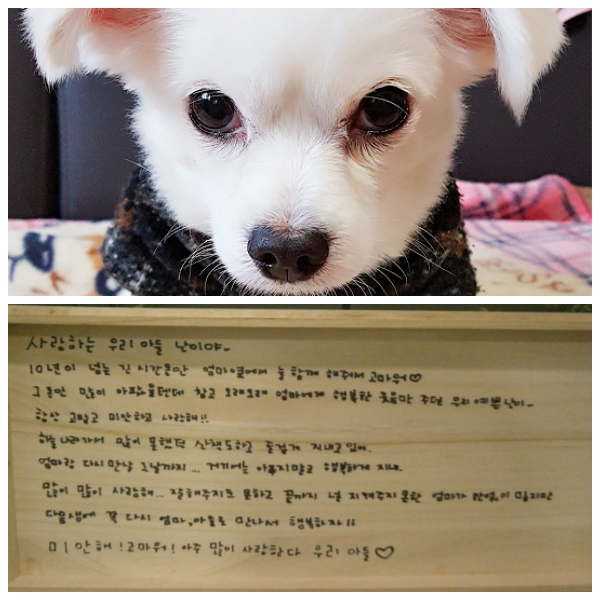 사랑하는 우리 아들 난이야~
10년이 넘는 긴 시간동안 엄마옆에서 늘 함께 해줘서 고마워♡
그동안 많이 아팠을텐데 참고 오래오래 엄마에게 행복한 웃음만 주던 우리 예쁜난이~
항상 고맙고 미안하고 사랑해!!
하늘나라가서 많이 못했던 산책도하고 즐겁게 지내고있어.
엄마랑 다시만날 그날까지... 거기서는 아푸지말고 행복하게 지내.
많이 많이 사랑해... 잘해주지도 못하고 끝까지 널 지켜주지못한 엄마가 한없이 밉지만
다음생에 꼭 다시 엄마,아들로 만나서 행복하자!!
미안해!고마워! 아주 많이 사랑한다 우리 아들♡